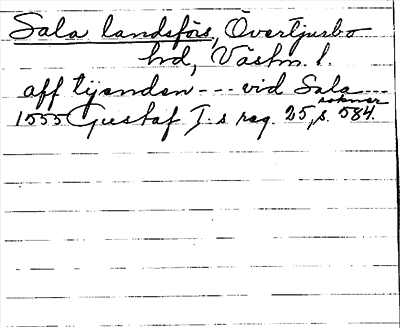 Sala landsförs, Övertjurbo
hd, Västm. l.
aff tijenden --- vid Sala ---
soknar
1555 Gustaf I:s reg. 25, s. 584.